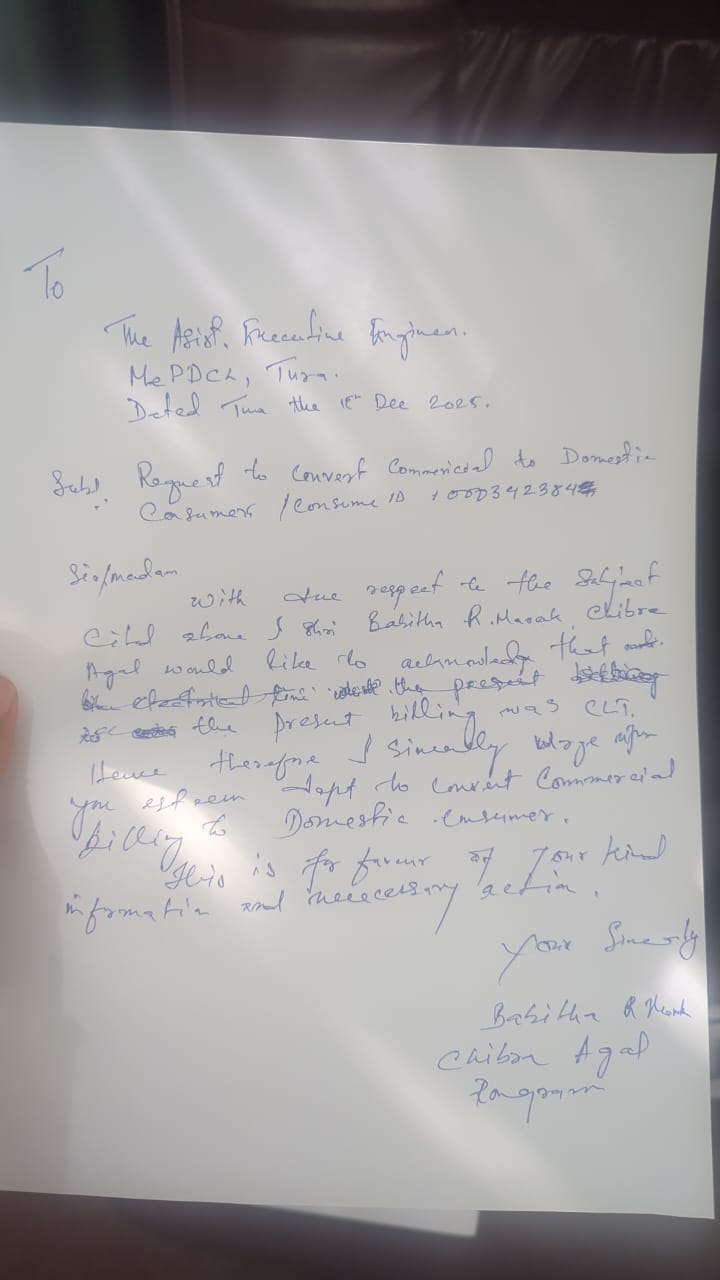 To
The Asist. Executive Engineer.
MePDCL, Tura.
Dated Tura the Dec 2025.
Sub:. Request to Convert Commercial to Domestic
Consumers / Consume ID
Sir/madam
With due respect to the Subject
Cited above I Shri Babitha R. Marak, Chibra
Agal would like to acknowledge that
the electrical the present billing
the present billing was CLT.
Hence therefore I Sincerely upon
you esteem dept to convert Commercial
billing to Domestic Consumer.
This is for favour of your kind
information and nececessary action.
Your Sincerly
Babitha R Marak
Chibra Agal
Rongram